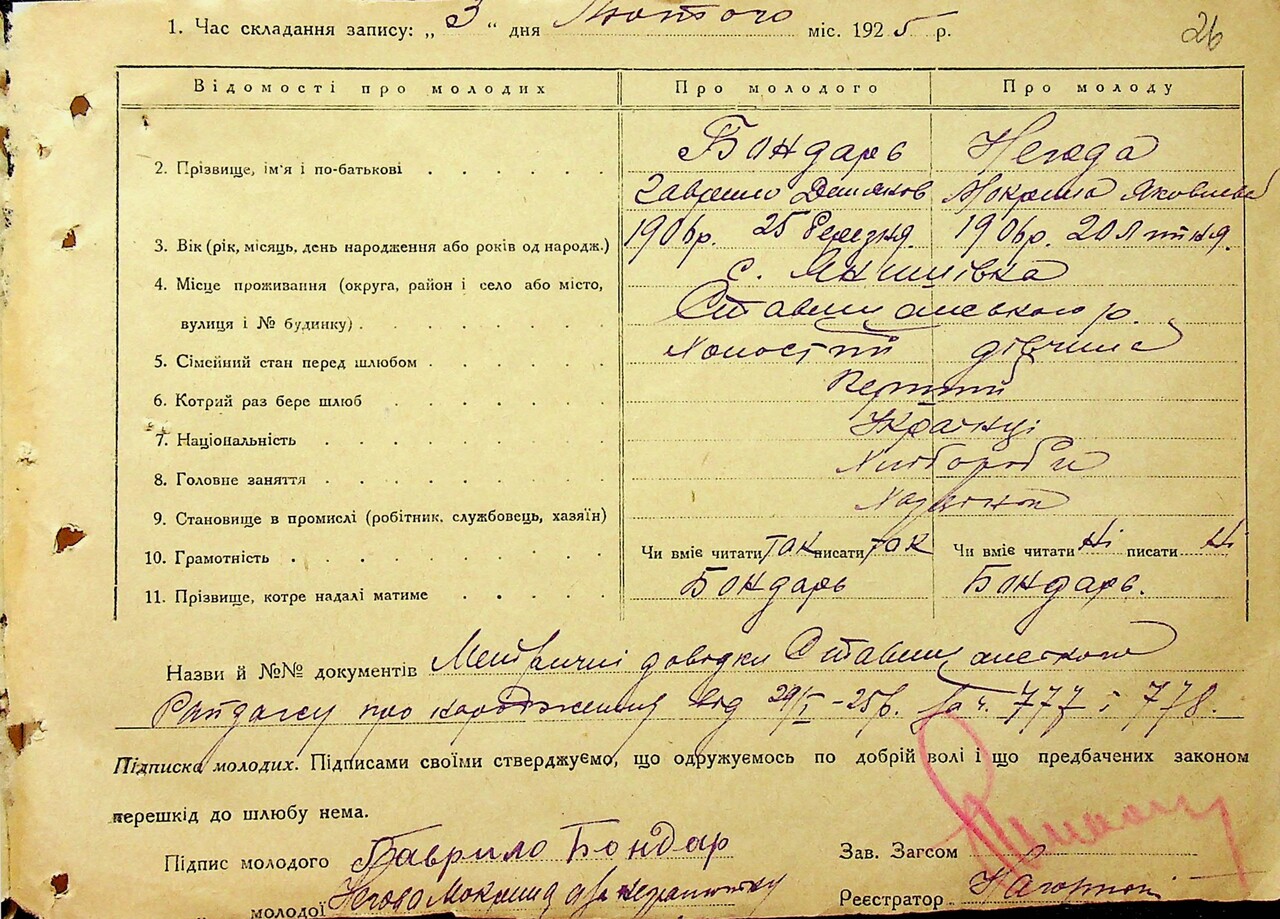 1. Час складання запису: „ 3 “ дня Лютого міс. 1925 р.
26
Відомості про молодих Про молодого Про молоду
2. Прізвище, ім'я і по-батькові Бондарь Негода
Гаврило Демянов Мокрина Яковлева
3. Вік (рік, місяць, день народження або років од народж.) 1906р. 25 березня 1906р. 20 Липня.
4. Місце проживання (округа, район і село або місто, с. Янишівка
вулиця і № будинку) Ставищанського р.
5. Сімейний стан перед шлюбом Холостий дівчина
6. Котрий раз бере шлюб Перший
7. Національність Українці
8. Головне заняття Хлібороби
9. Становище в промислі (робітник, службовець, хазяїн)
10. Грамотність Чи вміє читати так писати так Чи вміє читати ні писати ні
11. Прізвище, котре надалі матиме Бондарь Бондарь.
Назви й №№ документів Метричні довідки Ставищанского
Райзагсу про народження від 29/I-25р. за ч. 777 і 778.
Підписка молодих. Підписами своїми стверджуємо, що одружуємось по добрій волі і що предбачених законом
перешкід до шлюбу нема.
Підпис молодого Гаврило Бондар Зав. Загсом
молодої Негода Мокрина а за неграмотну Реєстратор